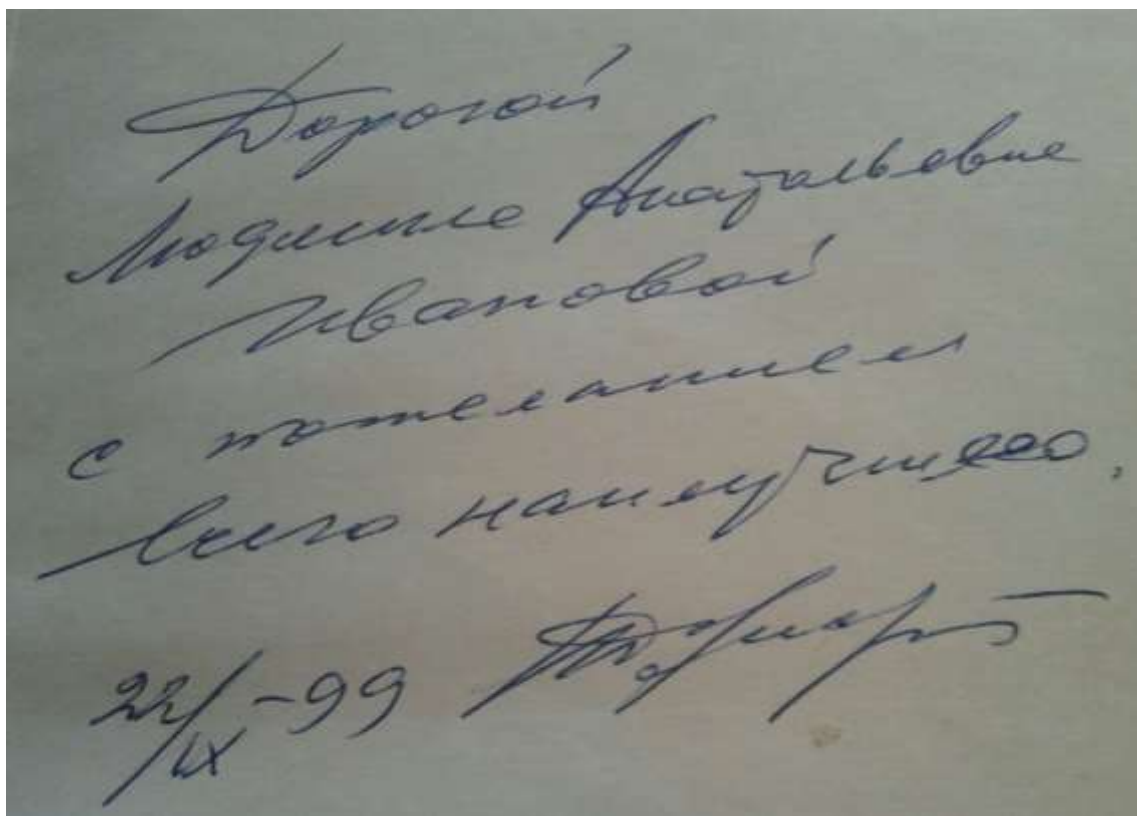 Дорогой
Людмиле Анатольевне
Ивановой
с пожеланием
всего наилучшего.
22/IX-99